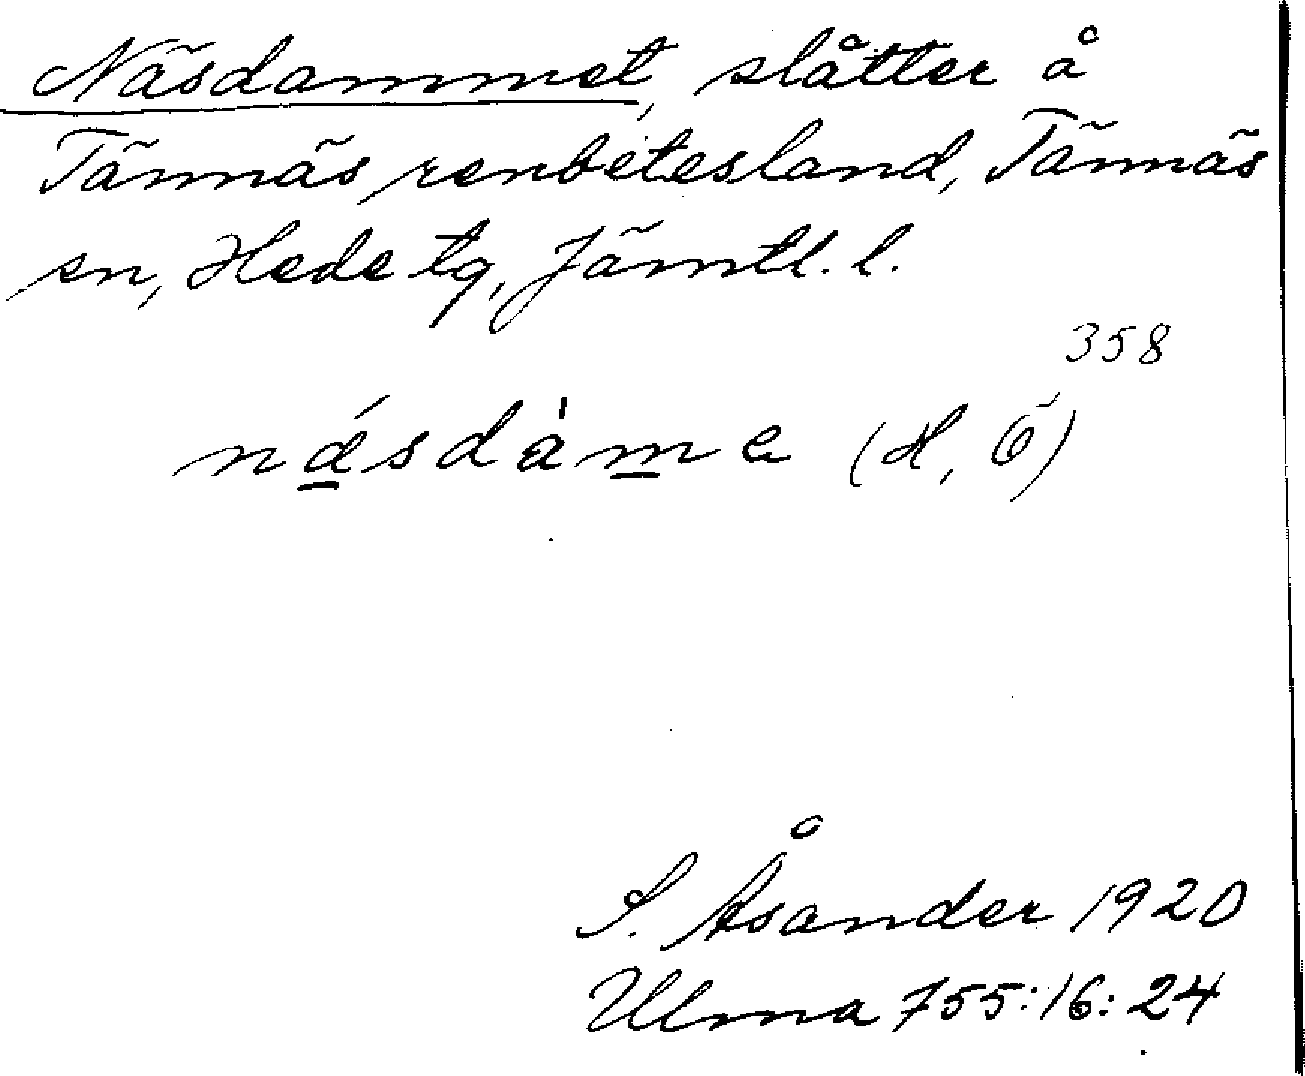 Näsdammet, slåtter å
Tännäs renbetesland, Tännäs
sn, Hede tg, Jämtl. l.
358
nä́sdàme (H, Ö)
S. Åsander 1920
Ulma 755:16:24